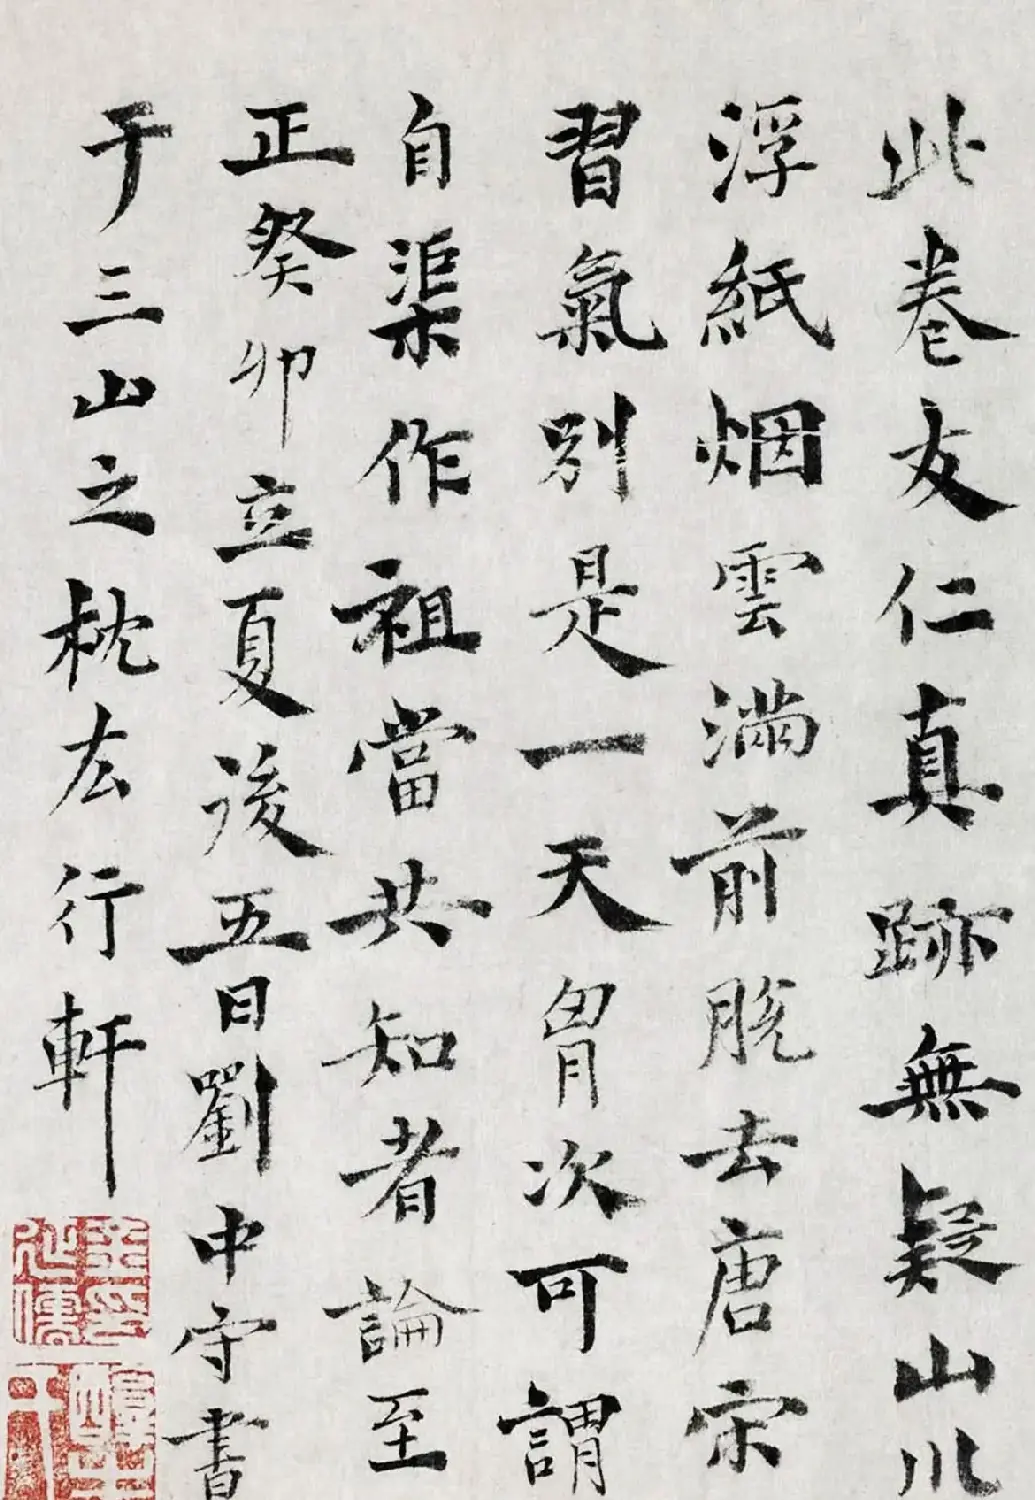 此卷友仁真跡無疑山川
浮紙烟雲滿前脫去唐宋
習氣別是一天胷次可謂
自渠作祖當共知者論至
正癸卯立夏後五日劉中守書
于三山之枕玄行軒